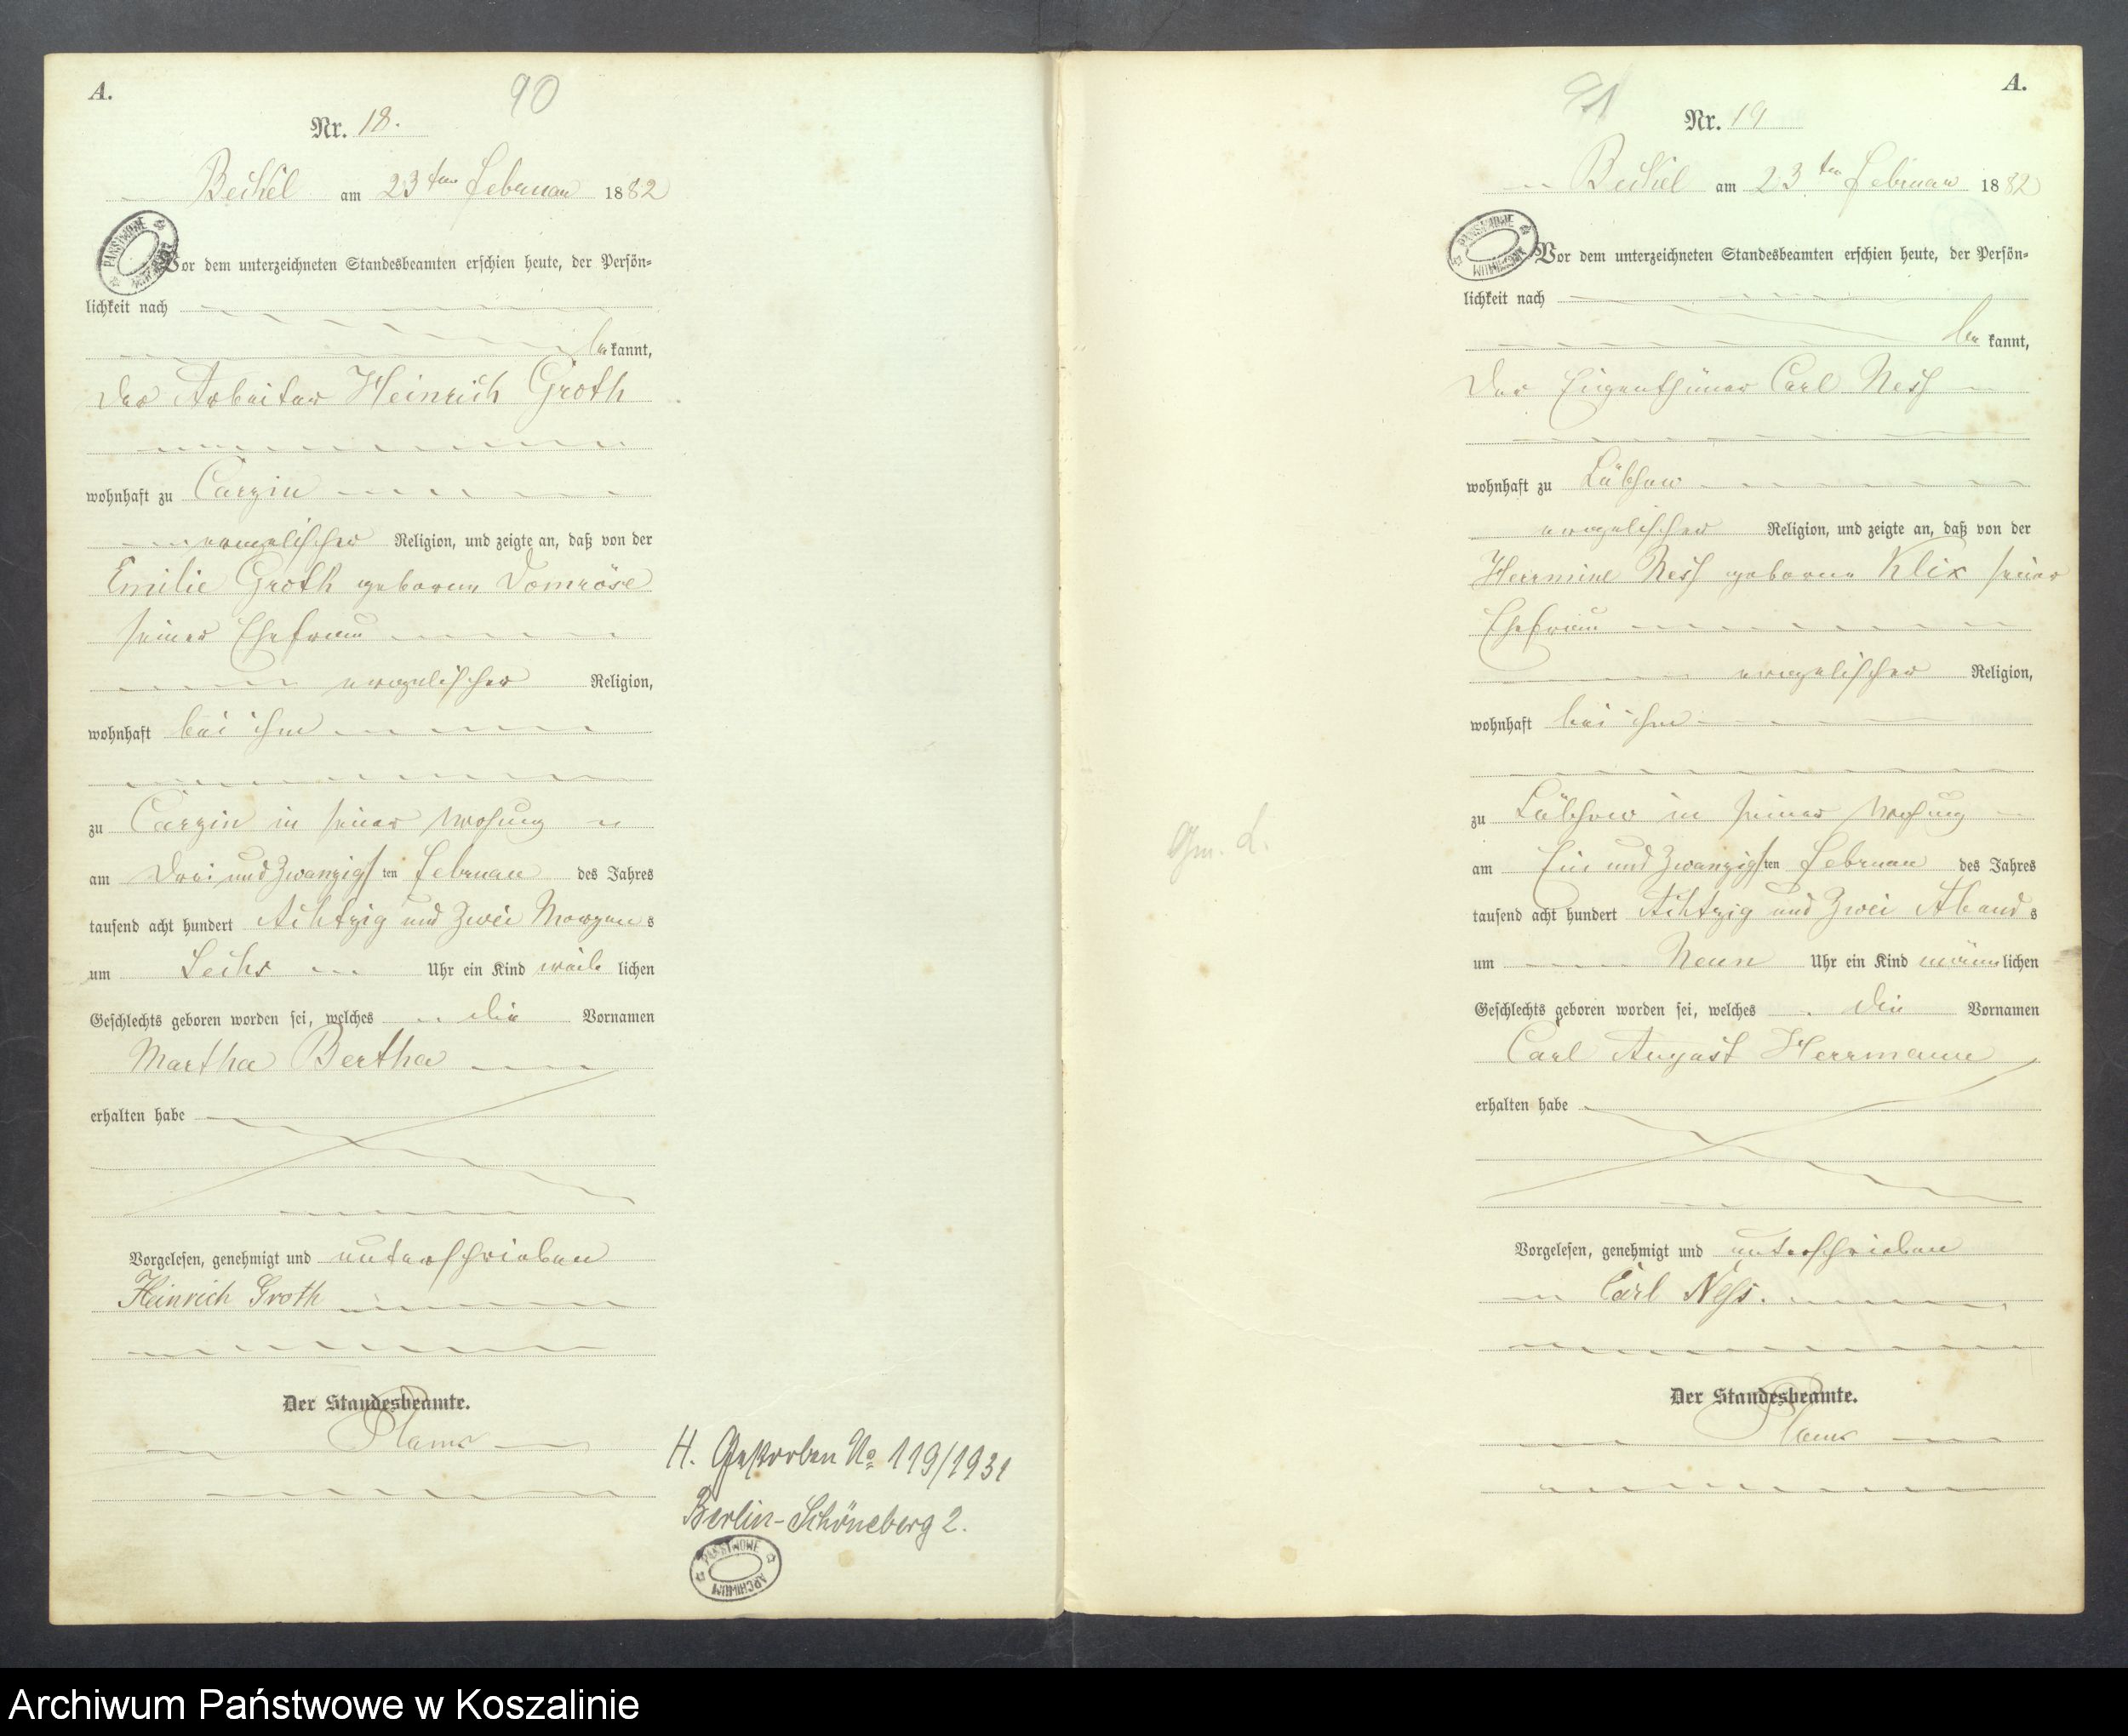 A.
90
Nr. 18.
Beckel am 23ten Februar 1882
PAŃSTWOWE ARCHIWUM
Vor dem unterzeichneten Standesbeamten erschien heute, der Persön=
lichkeit nach
bekannt,
der Arbeiter Heinrich Groth
wohnhaft zu Carzin
evangelischer Religion, und zeigte an, daß von der
Emilie Groth geborene Domröse
seiner Ehefrau
evangelischer Religion,
wohnhaft bei ihm
zu Carzin in seiner Wohnung
am Drei und Zwanzigsten Februar des Jahres
tausend acht hundert Achtzig und Zwei Morgens
um Sechs Uhr ein Kind weiblichen
Geschlechts geboren worden sei, welches die Vornamen
Martha Bertha
erhalten habe
Vorgelesen, genehmigt und unterschrieben
Heinrich Groth
Der Standesbeamte.
H. Gestorben No 119/1931
Berlin-Schöneberg 2.
PAŃSTWOWE ARCHIWUM
A.
91
Nr. 19
Beckel am 23ten Februar 1882
PAŃSTWOWE ARCHIWUM
Vor dem unterzeichneten Standesbeamten erschien heute, der Persön=
lichkeit nach
bekannt,
der Eigenthümer Carl Ness
wohnhaft zu Lübzow
evangelischer Religion, und zeigte an, daß von der
Herrmine Ness geborene Klix seiner
Ehefrau
evangelischer Religion,
wohnhaft bei ihm
zu Lübzow in seiner Wohnung
am Ein und Zwanzigsten Februar des Jahres
tausend acht hundert Achtzig und Zwei Abends
um Neun Uhr ein Kind männlichen
Geschlechts geboren worden sei, welches die Vornamen
Carl August Herrmann
erhalten habe
Vorgelesen, genehmigt und unterschrieben
Carl Ness.
Der Standesbeamte.
Archiwum Państwowe w Koszalinie